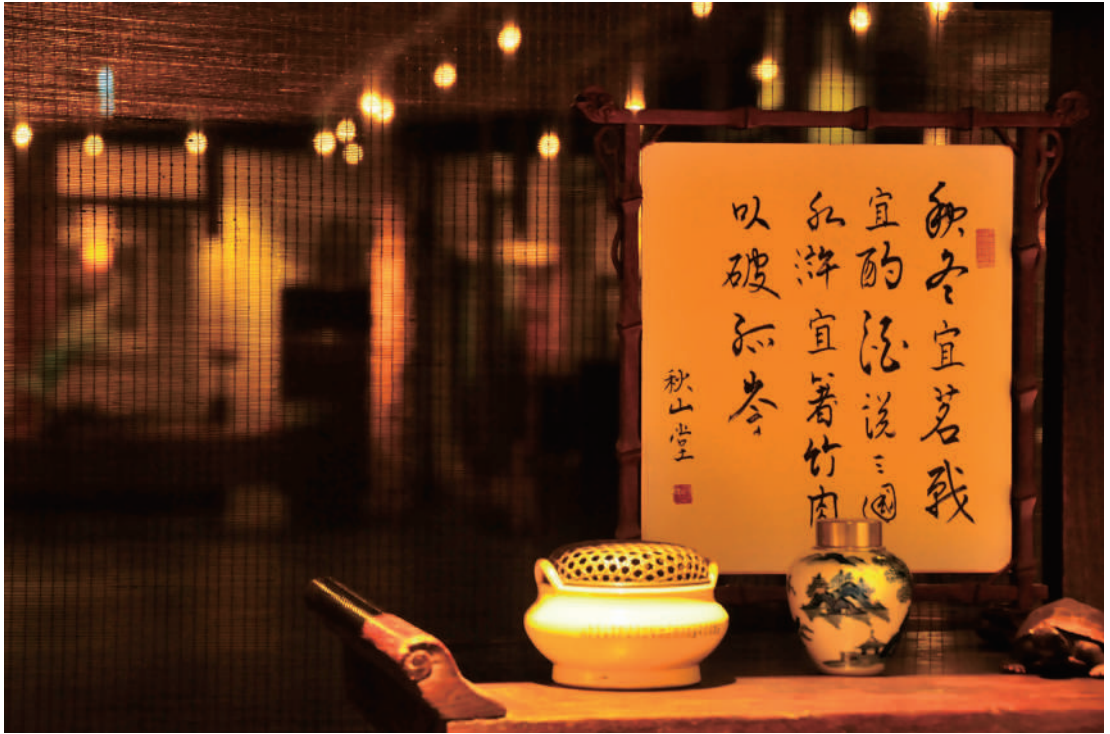 秋冬宜茗戰
宜酌酒說三國
水滸宜箸竹肉
以破孤岑
秋山堂